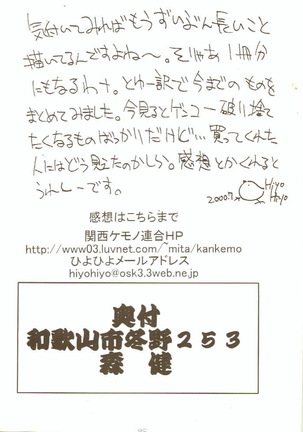 気付いてみればもうずいぶん長いこと
描いてるんですよね〜。そりゃあ1冊分
にもなるわナ。とゆー訳で今までのものを
まとめてみました。今見るとゲンコー破り捨て
たくなるものばっかりだけど…買ってくれた
人にはどう見えたのかしら。感想とかくれると
うれしーです。
2000.7
Hiyo
Hiyo
感想はこちらまで
関西ケモノ連合HP
http://www03.luvnet.com/~mita/kankemo
ひよひよメールアドレス
hiyohiyo@osk3.3web.ne.jp
奥付
和歌山市冬野253
森 健